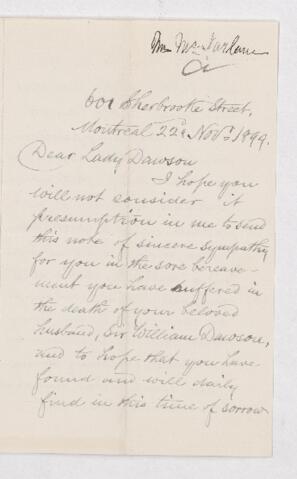 Mc Farlane
601 Sherbrooke Street,
Montreal 22d Nov. 1899.
Dear Lady Dawson
I hope you
will not consider it
presumption in me to send
this note of sincere sympathy
for you in the sore bereave-
ment you have suffered in
the death of your beloved
husband, Sir William Dawson,
and to hope that you have
found and will daily
find in this time of sorrow